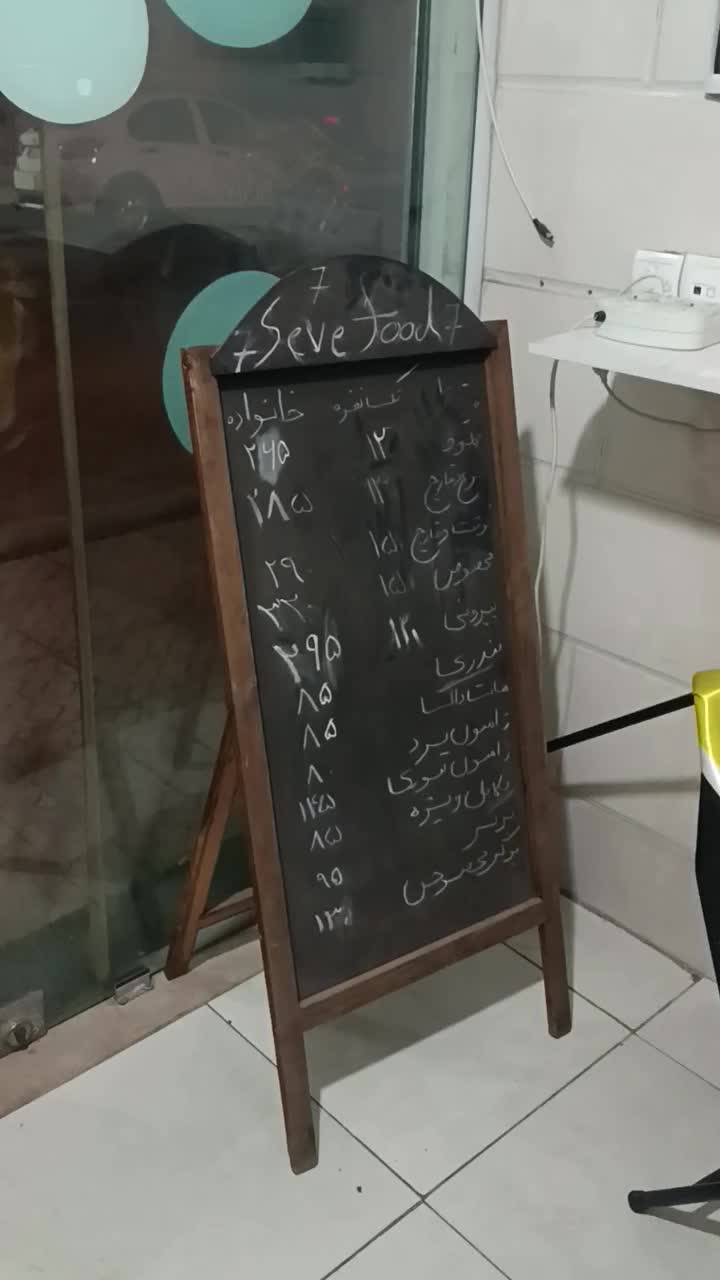 7
7 Seve food 7
پیتزا یکنفره خانواده
مخلوط ۱۲۰ ۲۶۵
مرغ و قارچ ۱۳۰ ۲۸۵
گوشت و قارچ ۱۵۰ ۲۹۰
مخصوص ۱۵۰ ۳۲۰
پپرونی ۱۲۰ ۲۹۵
بندری ۸۵
هات داگ ۸۵
ژامبون سرد ۸۰
ژامبون تنوری ۱۴۵
ویژه ۸۵
برگر ۹۵
برگر مخصوص ۱۳۰